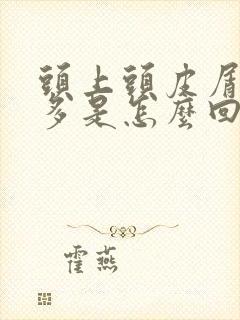 頭上頭皮屑
多是怎麼回
霍燕